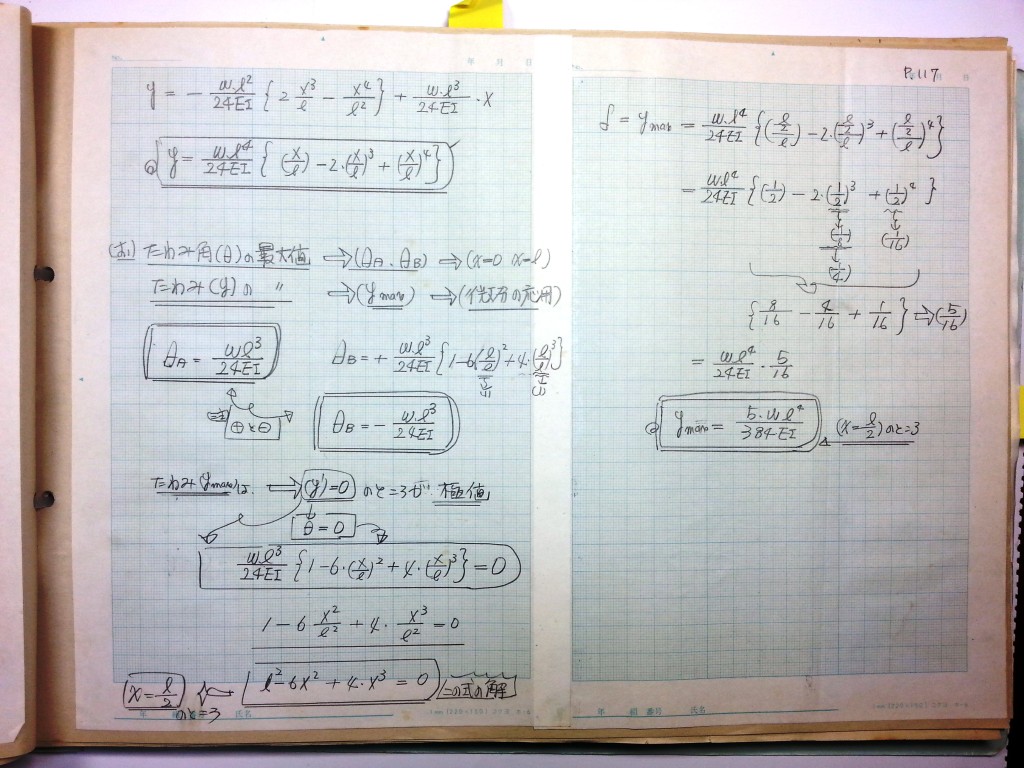 y = − w·l²/24EI {2 x³/l − x⁴/l²} + w·l³/24EI · x
y = w·l⁴/24EI { (x/l) − 2·(x/l)³ + (x/l)⁴ }
たわみ角(θ)の最大値 ⇒ (θA、θB) ⇒ (x=0 x=l)
たわみ(y)の 〃 ⇒ (ymax) ⇒ (微分の応用)
θA = wl³/24EI
θB = + w·l³/24EI {1−6(l/l)² + 4·(l/l)³}
(1) (1)
⊕と⊖
θB = − w·l³/24EI
たわみ(ymax)は、 ⇒ (y')=0 のところが 極値
θ = 0
w·l³/24EI {1−6·(x/l)² + 4·(x/l)³} = 0
1 − 6 x²/l² + 4· x³/l² = 0
l² − 6x² + 4·x³ = 0 この式の解
x = l/2 のところ
年 組 番号 氏名
P.117
年 月 日
δ = ymax = w·l⁴/24EI {((l/2)/l) − 2·((l/2)/l)³ + ((l/2)/l)⁴}
= wl⁴/24EI {(1/2) − 2·(1/2)³ + (1/2)⁴}
(1/8) (1/16)
(1/4)
{8/16 − 4/16 + 1/16} ⇒ (5/16)
= wl⁴/24EI · 5/16
ymax = 5·wl⁴/384EI (x = l/2) のところ
年 組 番号 氏名